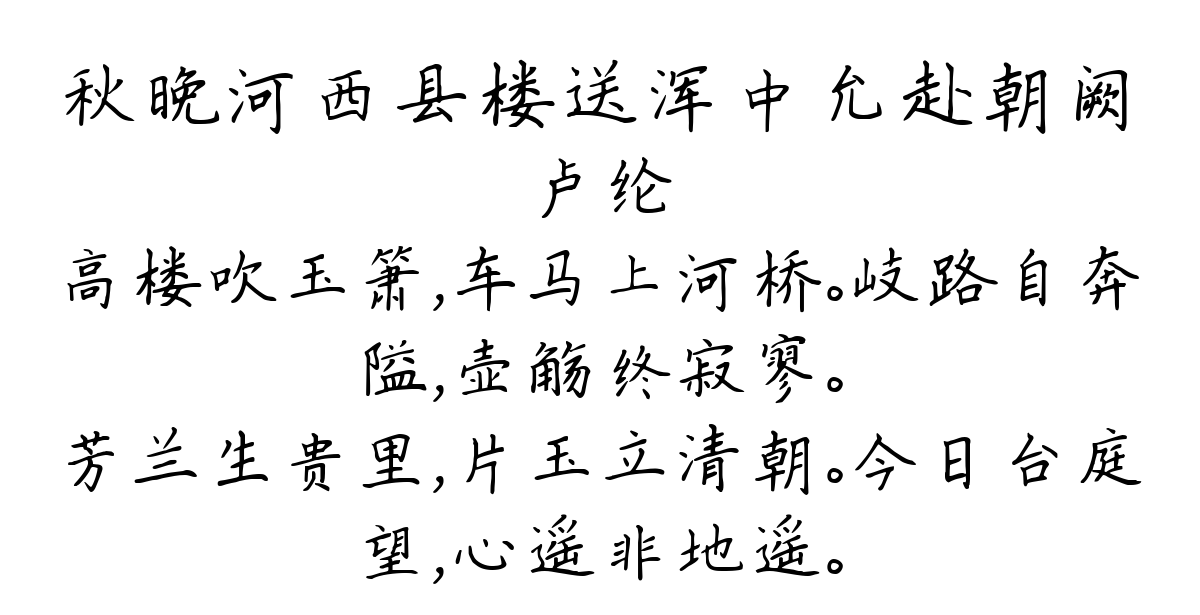 秋晚河西县楼送浑中允赴朝阙
卢纶
高楼吹玉箫,车马上河桥。岐路自奔
隘,壶觞终寂寥。
芳兰生贵里,片玉立清朝。今日台庭
望,心遥非地遥。